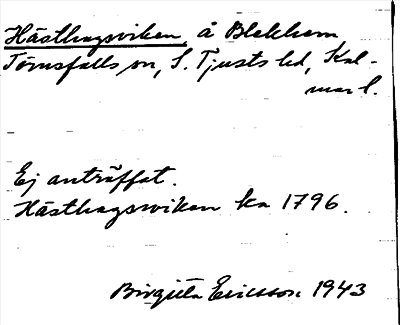 Hästhagsviken, å Blekhem
Törnsfalls sn, S. Tjusts hd, Kal-
mar l.
Ej anträffat.
Hästhagsviken ka 1796.
Birgitta Ericsson 1943